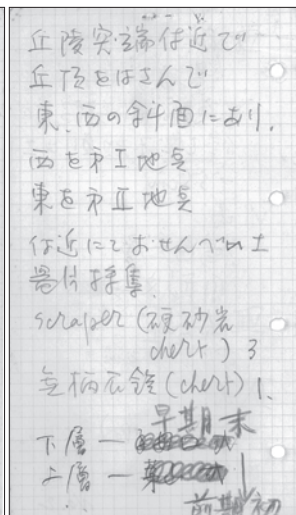 丘陵突端付近で
丘頂をはさんで
東、西の斜面にあり、
西を第I地点
東を第II地点
付近にておせんべ土
器片採集
scraper (硬砂岩
chert) 3
無柄石鏃(chert) 1.
早期末
下層 —
上層 —
↓
前期初